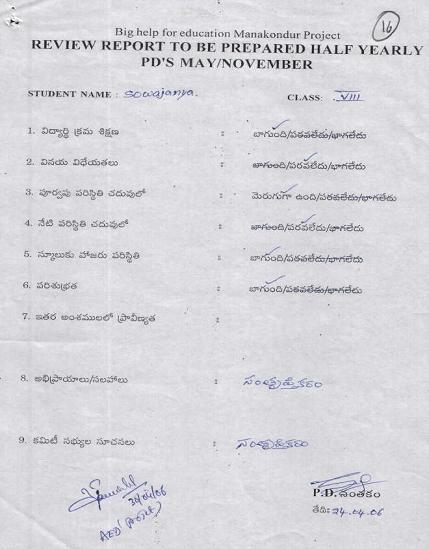 16
Big help for education Manakondur Project
REVIEW REPORT TO BE PREPARED HALF YEARLY
PD'S MAY/NOVEMBER
STUDENT NAME : Sowajanya. CLASS: VIII
1. విద్యార్థి క్రమ శిక్షణ : బాగుంది/పరవలేదు/భాగలేదు
2. వినయ విధేయతలు : బాగుంది/పరవలేదు/భాగలేదు
3. పూర్వపు పరిస్థితి చదువులో : మెరుగుగా ఉంది/పరవలేదు/భాగలేదు
4. నేటి పరిస్థితి చదువులో : బాగుంది/పరవలేదు/భాగలేదు
5. స్కూలుకు హాజరు పరిస్థితి : బాగుంది/పరవలేదు/భాగలేదు
6. పరిశుభ్రత : బాగుంది/పరవలేదు/భాగలేదు
7. ఇతర అంశములలో ప్రావీణ్యత :
8. అభిప్రాయాలు/సలహాలు : సంతృప్తికరం
9. కమిటీ సభ్యుల సూచనలు : సంతృప్తికరం
P.D. సంతకం
తేది: 24.04.06